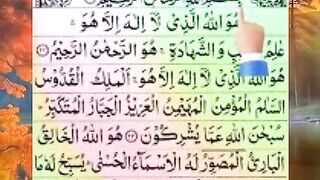 هُوَ اللّٰهُ الَّذِیْ لَاۤ اِلٰهَ اِلَّا هُوَ ۚ
عٰلِمُ الْغَیْبِ وَ الشَّهَادَةِ ۚ هُوَ الرَّحْمٰنُ الرَّحِیْمُ ﴿۲۲﴾
هُوَ اللّٰهُ الَّذِیْ لَاۤ اِلٰهَ اِلَّا هُوَ ۚ اَلْمَلِكُ الْقُدُّوْسُ
السَّلٰمُ الْمُؤْمِنُ الْمُهَیْمِنُ الْعَزِیْزُ الْجَبَّارُ الْمُتَكَبِّرُ ؕ
سُبْحٰنَ اللّٰهِ عَمَّا یُشْرِكُوْنَ ﴿۲۳﴾ هُوَ اللّٰهُ الْخَالِقُ
الْبَارِئُ الْمُصَوِّرُ لَهُ الْاَسْمَآءُ الْحُسْنٰی ؕ یُسَبِّحُ لَهٗ مَا